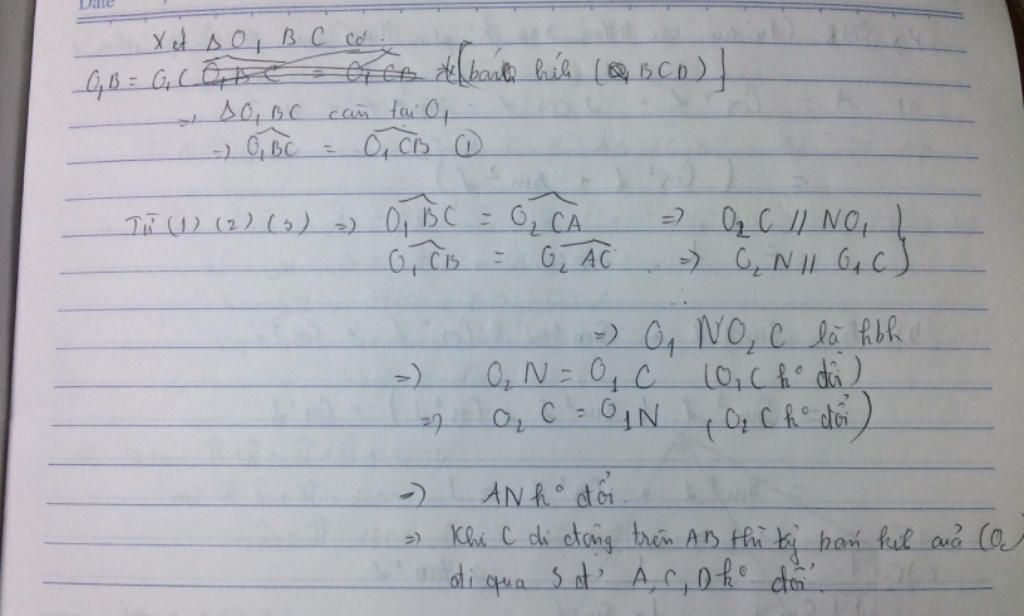 Date
Xét ΔO₁BC có:
O₁B = O₁C [bán kính (O₁BCD)]
=> ΔO₁BC cân tại O₁
=> O₁BC = O₁CB ①
Từ (1) (2) (3) => O₁BC = O₂CA => O₂C // NO₁ }
O₁CB = O₂AC => O₂N // O₁C }
=> O₁NO₂C là hbh
=> O₂N = O₁C (O₁C k° đổi)
=> O₂C = O₁N (O₂C k° đổi)
=> AN k° đổi.
=> Khi C di động trên AB thì bán kính của (O₂)
đi qua 3 đ' A, C, D k° đổi.